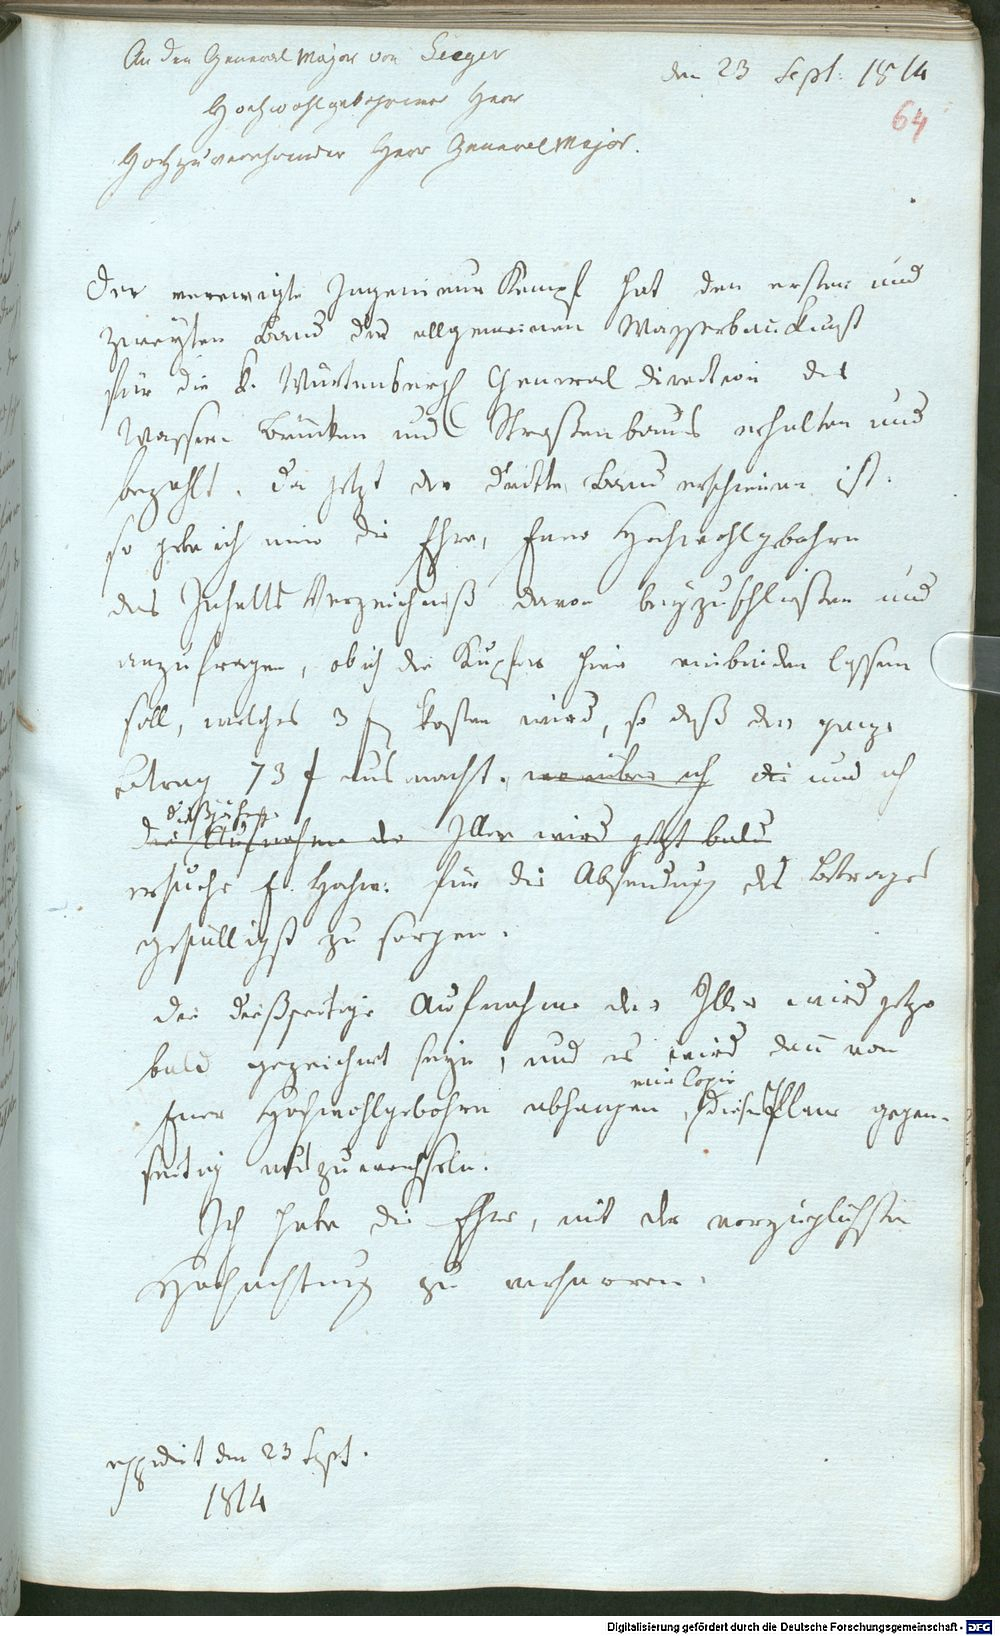 An den General Major von Seeger
den 23 Sept: 1814
64
Hochwohlgebohrner Herr
Hochzuverehrender Herr General Major.
Der verewigte Ingenieur Kempf hat den ersten und
zweyten Band der allgemeinen Wasserbaukunst
für die k. Würtenbergl General direction des
Wasser Brücken und Straßenbaues erhalten und
bezahlt. Da jetzt der dritte Band erschienen ist.
so gebe ich mir die Ehre, Euer Hochwohlgebohrn
das Inhalts Verzeichniß davon beyzuschließen und
anzufragen, ob ich die Kupfer hier einbinden lassen
soll, welches 3 f kosten wird, so daß der ganze
Betrag 73 f ausmacht. die und ich
dießseitige
Die Aufnahme der Iller wird jetzt bald
ersuche E. Hochw: für die Absendung des Betrages
gefälligst zu sorgen.
Die dießseitige Aufnahme der Iller wird jetzo
bald gezeichnet seyn, und es wird dann von
eine Copie
Euer Hochwohlgebohrn abhangen, dieses Plans gegen-
seitig auszuwechseln.
Ich habe die Ehre, mit der vorzüglichsten
Hochachtung zu verharren.
expedirt den 23 Sept.
1814
Digitalisierung gefördert durch die Deutsche Forschungsgemeinschaft - DFG